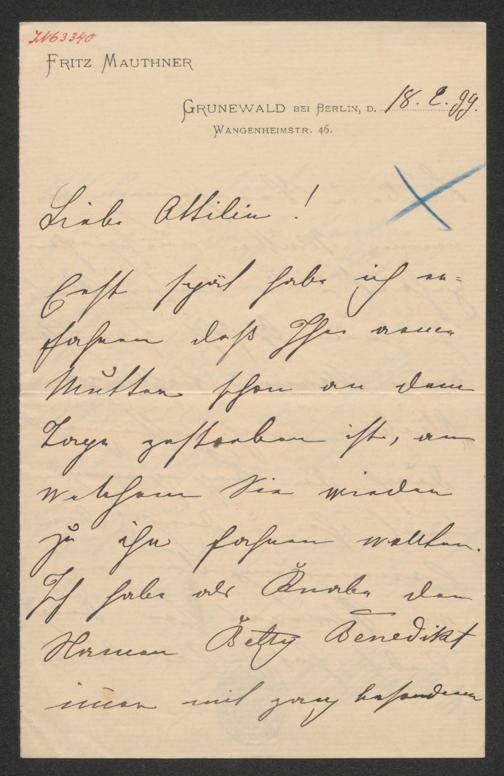 IN63340
FRITZ MAUTHNER
GRUNEWALD BEI BERLIN, D. 18. 2. 99.
WANGENHEIMSTR. 46.
Liebe Ottilie !
Erst spät habe ich er=
fahren daß Ihre arme
Mutter schon an dem
Tage gestorben ist, an
welchem Sie wieder
zu ihr fahren wollten.
Ich habe als Knabe den
Namen Betty Benedikt
immer mit ganz besonderer